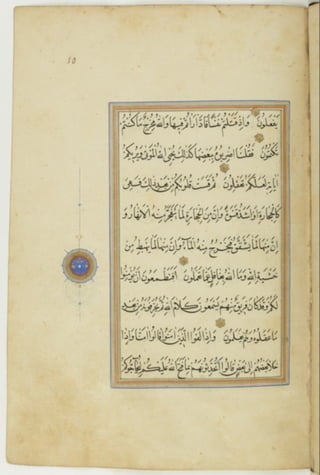 10
يفعلون وإذ قتلتم نفسا فادارأتم فيها والله مخرج ما كنتم
تكتمون فقلنا اضربوه ببعضها كذلك يحيي الله الموتى ويريكم
آياته لعلكم تعقلون ثم قست قلوبكم من بعد ذلك فهي
كالحجارة أو أشد قسوة وإن من الحجارة لما يتفجر منه الأنهار و
إن منها لما يشقق فيخرج منه الماء وإن منها لما يهبط من
خشية الله وما الله بغافل عما تعملون أفتطمعون أن يؤمنوا
لكم وقد كان فريق منهم يسمعون كلام الله ثم يحرفونه من بعد
ما عقلوه وهم يعلمون وإذا لقوا الذين آمنوا قالوا آمنا وإذا
خلا بعضهم إلى بعض قالوا أتحدثونهم بما فتح الله عليكم ليحاجوكم